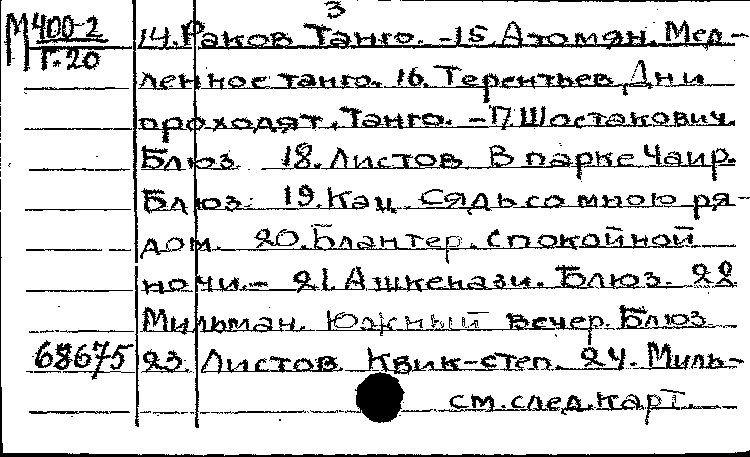 3
М 400-2 14. Раков Танго. -15. Атомян. Мед-
Г-20
ленное танго. 16. Терентьев, Дни
проходят. Танго. -17 Шостакович.
Блюз 18. Листов В парке Чаир.
Блюз. 19. Кац. Сядь со мною ря-
дом. 20. Блантер. Спокойной
ночи. - 21. Ашкенази. Блюз. 22
Мильман. Южный вечер. Блюз
68675 23. Листов. Квик-степ. 24. Миль-
см. след. карт.